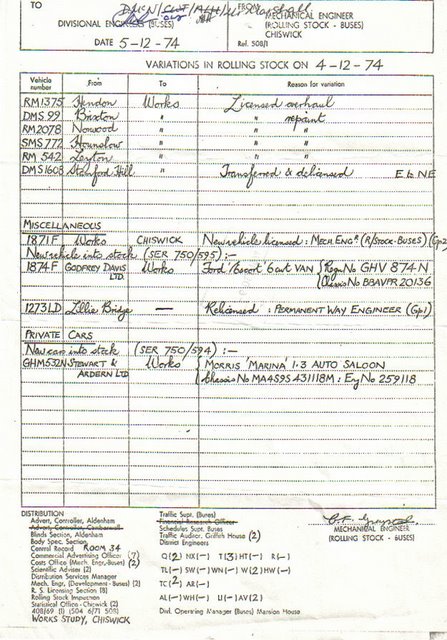 TO
FROM
DIVISIONAL ENGINEERS (BUSES)
MECHANICAL ENGINEER
(ROLLING STOCK - BUSES)
CHISWICK
DATE 5-12-74
Ref. 508/1
VARIATIONS IN ROLLING STOCK ON 4-12-74
Vehicle number From To Reason for variation
RM1375 Hendon Works Licensed overhaul
DMS 99 Brixton " " repaint
RM2078 Norwood " " "
SMS 772 Hounslow " " "
RM 542 Leyton " " "
DMS1608 Stamford Hill Transferred & delicensed E to NE
MISCELLANEOUS
1871 F Works CHISWICK New vehicle licensed: MECH ENGR (R/STOCK-BUSES) (Gp2)
New vehicle into stock (SER 750/595) :-
1874 F GODFREY DAVIS LTD. Works Ford 'Escort' 6cwt VAN Regn No GHV 874N
Chassis No BBAVPR 20136
1273LD Lillie Bridge — Relicensed : PERMANENT WAY ENGINEER (Gp1)
PRIVATE CARS
New car into stock (SER 750/594) :-
GHM532N STEWART & ARDERN LTD Works MORRIS 'MARINA' 1·3 AUTO SALOON
Chassis No MA4S9S 431118M : Eng No 259118
DISTRIBUTION
Advert. Controller, Aldenham
Blinds Section, Aldenham
Body Spec. Section
Central Record ROOM 34
Commercial Advertising Officer (7)
Costs Office (Mech. Engr.-Buses) (2)
Scientific Adviser (2)
Distribution Services Manager
Mech. Engr. (Development - Buses) (2)
R. S. Licensing Section (8)
Rolling Stock Inspection
Statistical Office - Chiswick (2)
408/69 (1) (504 6/71 508)
WORKS STUDY, CHISWICK
Traffic Supt. (Buses)
Financial Research Officer
Schedules Supt. Buses
Traffic Auditor, Griffith House (2)
District Engineers
Q(2) NX(-) T(3) HT(-) R(-)
TL(-) SW(-) WN(-) W(2) HW(-)
TC(2) AR(-)
AL(-) WH(-) U(-) AV(2)
Divl. Operating Manager (Buses) Mansion House
MECHANICAL ENGINEER
(ROLLING STOCK - BUSES)